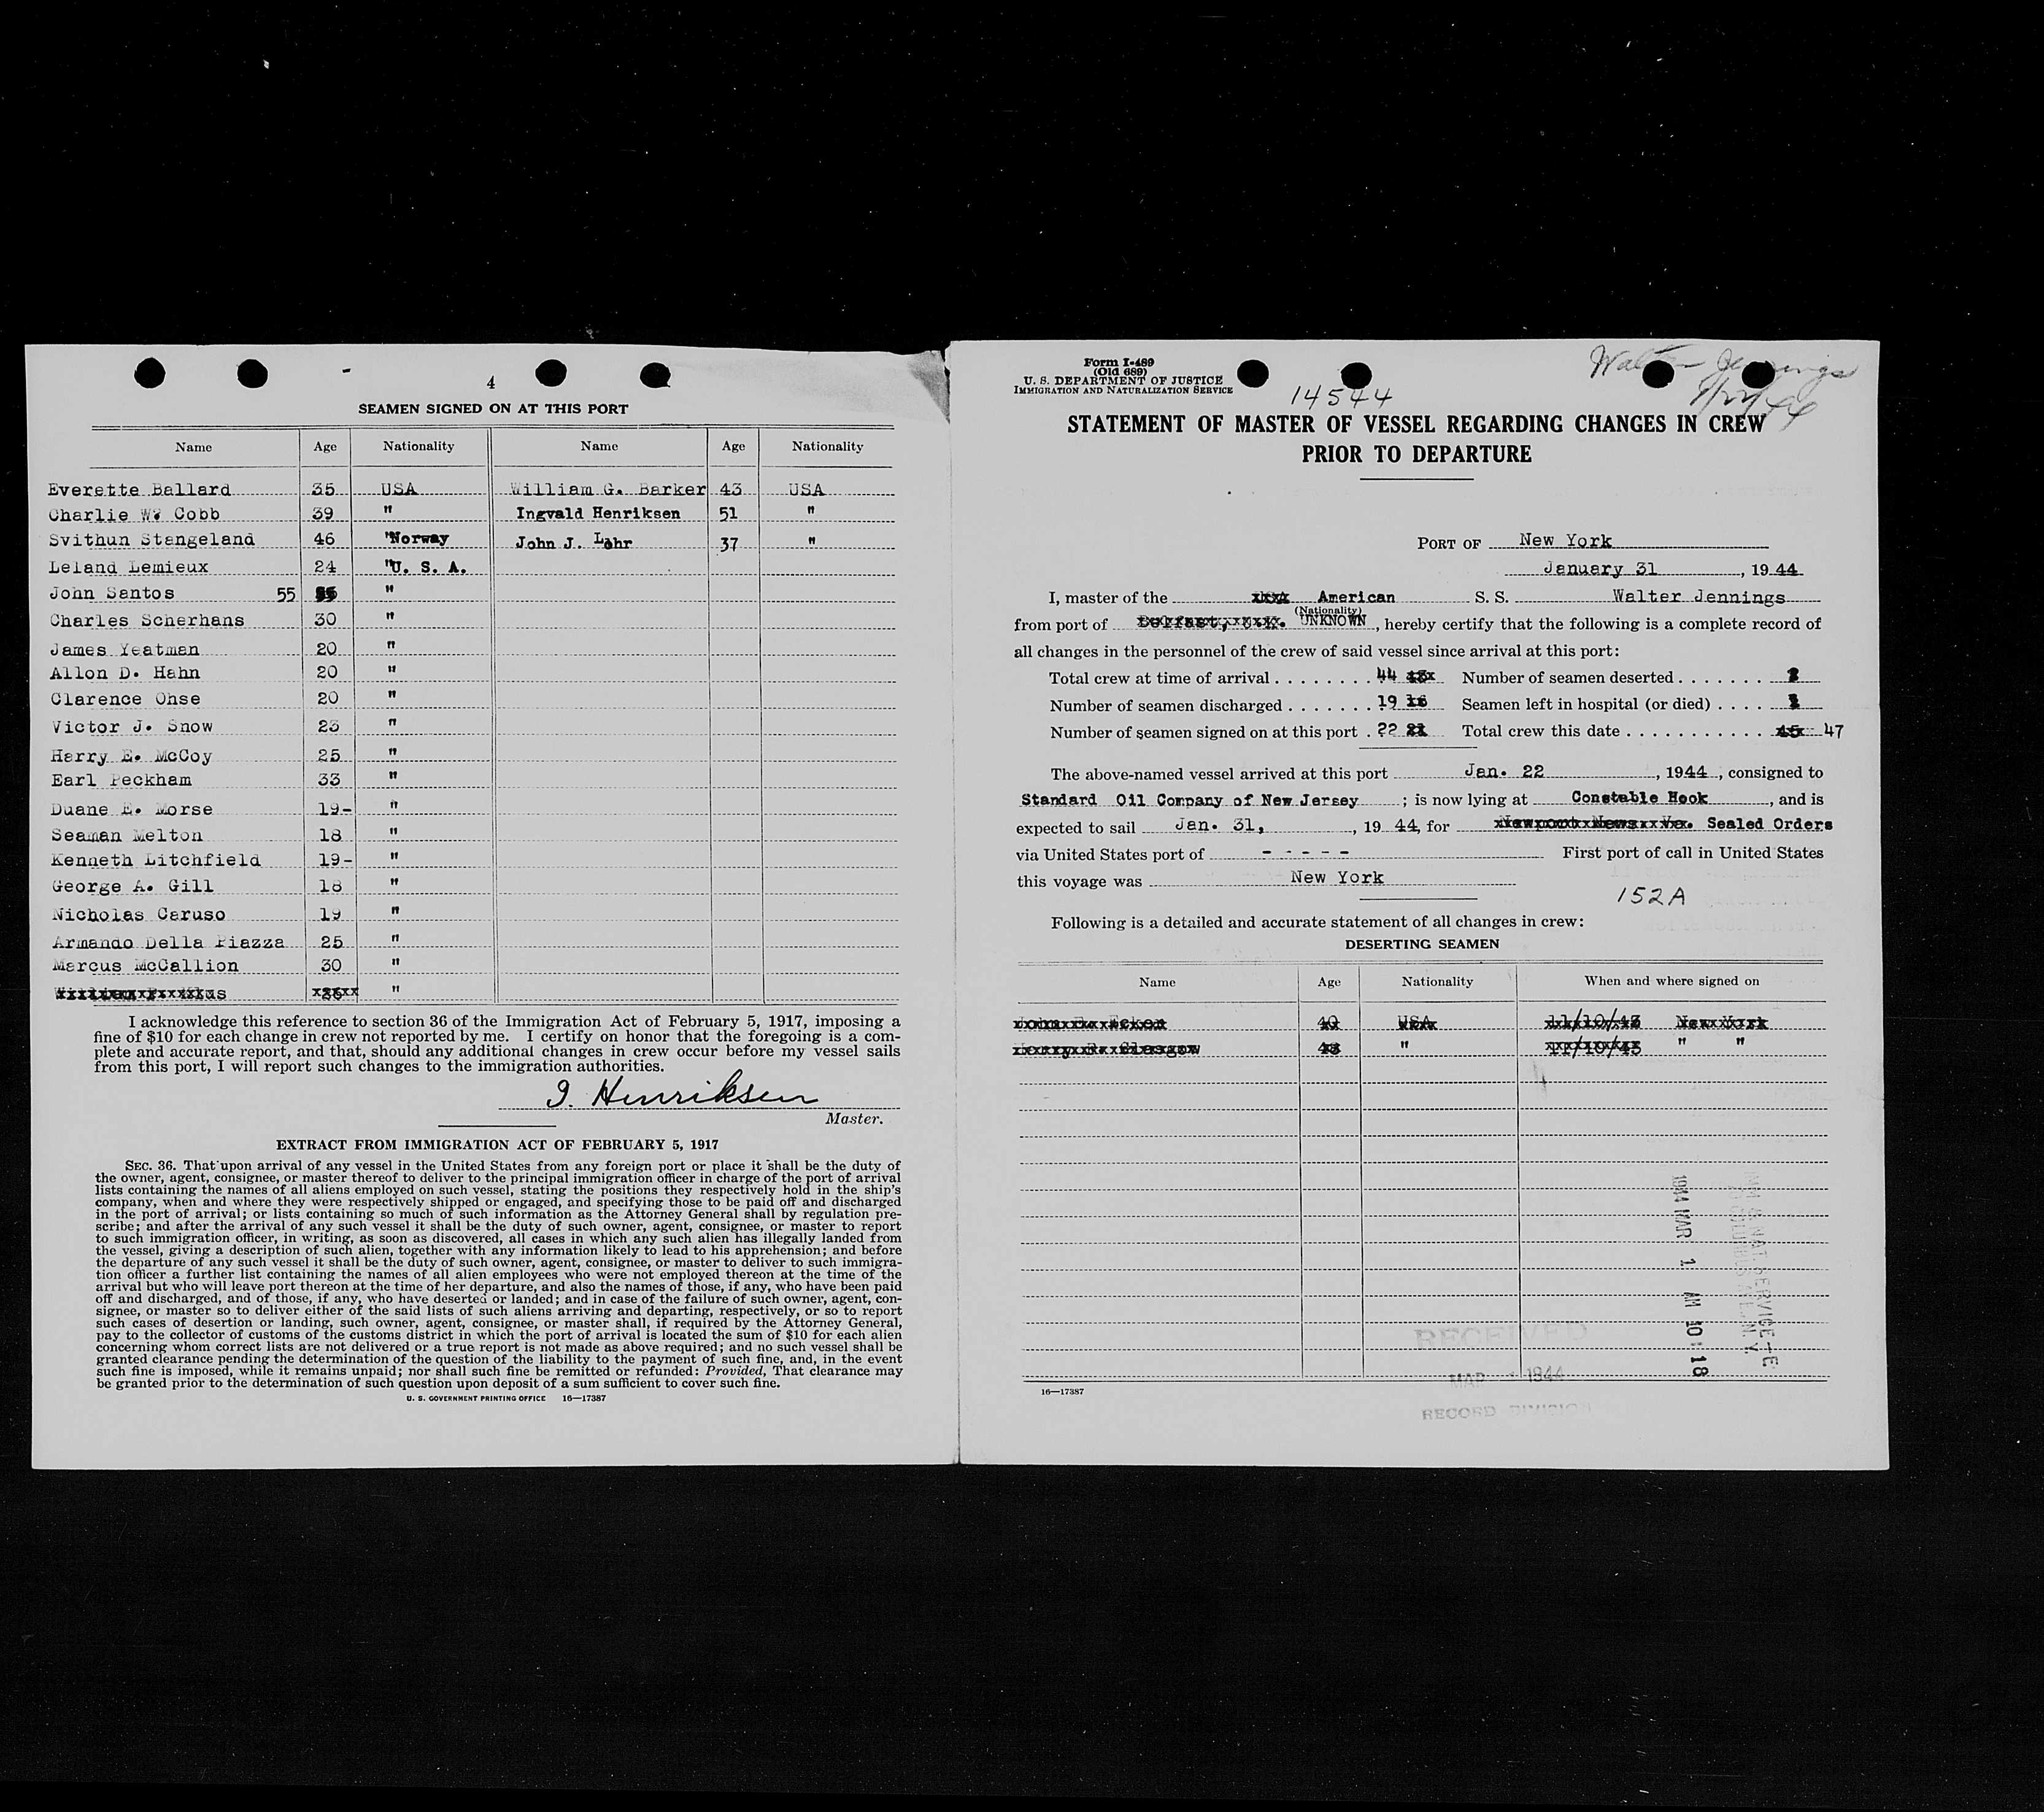 4
SEAMEN SIGNED ON AT THIS PORT
Name Age Nationality Name Age Nationality
Everette Ballard 35 USA William G. Barker 43 USA
Charlie W. Cobb 39 " Ingvald Henriksen 51 "
Svithun Stangeland 46 "Norway John J. Lohr 37 "
Leland Lemieux 24 "U. S. A.
John Santos 55 "
Charles Scherhans 30 "
James Yeatman 20 "
Allon D. Hahn 20 "
Clarence Ohse 20 "
Victor J. Snow 23 "
Harry E. McCoy 25 "
Earl Peckham 33 "
Duane E. Morse 19- "
Seaman Melton 18 "
Kenneth Litchfield 19- "
George A. Gill 18 "
Nicholas Caruso 19 "
Armando Della Piazza 25 "
Marcus McCallion 30 "
"
I acknowledge this reference to section 36 of the Immigration Act of February 5, 1917, imposing a
fine of $10 for each change in crew not reported by me. I certify on honor that the foregoing is a com-
plete and accurate report, and that, should any additional changes in crew occur before my vessel sails
from this port, I will report such changes to the immigration authorities.
I. Henriksen
Master.
EXTRACT FROM IMMIGRATION ACT OF FEBRUARY 5, 1917
SEC. 36. That upon arrival of any vessel in the United States from any foreign port or place it shall be the duty of
the owner, agent, consignee, or master thereof to deliver to the principal immigration officer in charge of the port of arrival
lists containing the names of all aliens employed on such vessel, stating the positions they respectively hold in the ship's
company, when and where they were respectively shipped or engaged, and specifying those to be paid off and discharged
in the port of arrival; or lists containing so much of such information as the Attorney General shall by regulation pre-
scribe; and after the arrival of any such vessel it shall be the duty of such owner, agent, consignee, or master to report
to such immigration officer, in writing, as soon as discovered, all cases in which any such alien has illegally landed from
the vessel, giving a description of such alien, together with any information likely to lead to his apprehension; and before
the departure of any such vessel it shall be the duty of such owner, agent, consignee, or master to deliver to such immigra-
tion officer a further list containing the names of all alien employees who were not employed thereon at the time of the
arrival but who will leave port thereon at the time of her departure, and also the names of those, if any, who have been paid
off and discharged, and of those, if any, who have deserted or landed; and in case of the failure of such owner, agent, con-
signee, or master so to deliver either of the said lists of such aliens arriving and departing, respectively, or so to report
such cases of desertion or landing, such owner, agent, consignee, or master shall, if required by the Attorney General,
pay to the collector of customs of the customs district in which the port of arrival is located the sum of $10 for each alien
concerning whom correct lists are not delivered or a true report is not made as above required; and no such vessel shall be
granted clearance pending the determination of the question of the liability to the payment of such fine, and, in the event
such fine is imposed, while it remains unpaid; nor shall such fine be remitted or refunded: Provided, That clearance may
be granted prior to the determination of such question upon deposit of a sum sufficient to cover such fine.
U. S. GOVERNMENT PRINTING OFFICE 16—17387
Form I-489
(Old 689)
U. S. DEPARTMENT OF JUSTICE
IMMIGRATION AND NATURALIZATION SERVICE
14544
Walter Jennings
1/22/44
STATEMENT OF MASTER OF VESSEL REGARDING CHANGES IN CREW
PRIOR TO DEPARTURE
PORT OF New York
January 31, 1944
I, master of the American S. S. Walter Jennings
(Nationality)
from port of Belfast, UNKNOWN, hereby certify that the following is a complete record of
all changes in the personnel of the crew of said vessel since arrival at this port:
Total crew at time of arrival 44 Number of seamen deserted
Number of seamen discharged 19 16 Seamen left in hospital (or died)
Number of seamen signed on at this port 22 21 Total crew this date 45 47
The above-named vessel arrived at this port Jan. 22, 1944, consigned to
Standard Oil Company of New Jersey; is now lying at Constable Hook, and is
expected to sail Jan. 31, , 1944, for Newport News Va. Sealed Orders
via United States port of - - - - - First port of call in United States
this voyage was New York
152A
Following is a detailed and accurate statement of all changes in crew:
DESERTING SEAMEN
Name Age Nationality When and where signed on
40 USA 11/10/43 New York
Glasgow 48 " 11/10/43 " "
1944 MAR 1 AM 10:18
RECEIVED
MAR 1944
RECORD DIVISION
16—17387